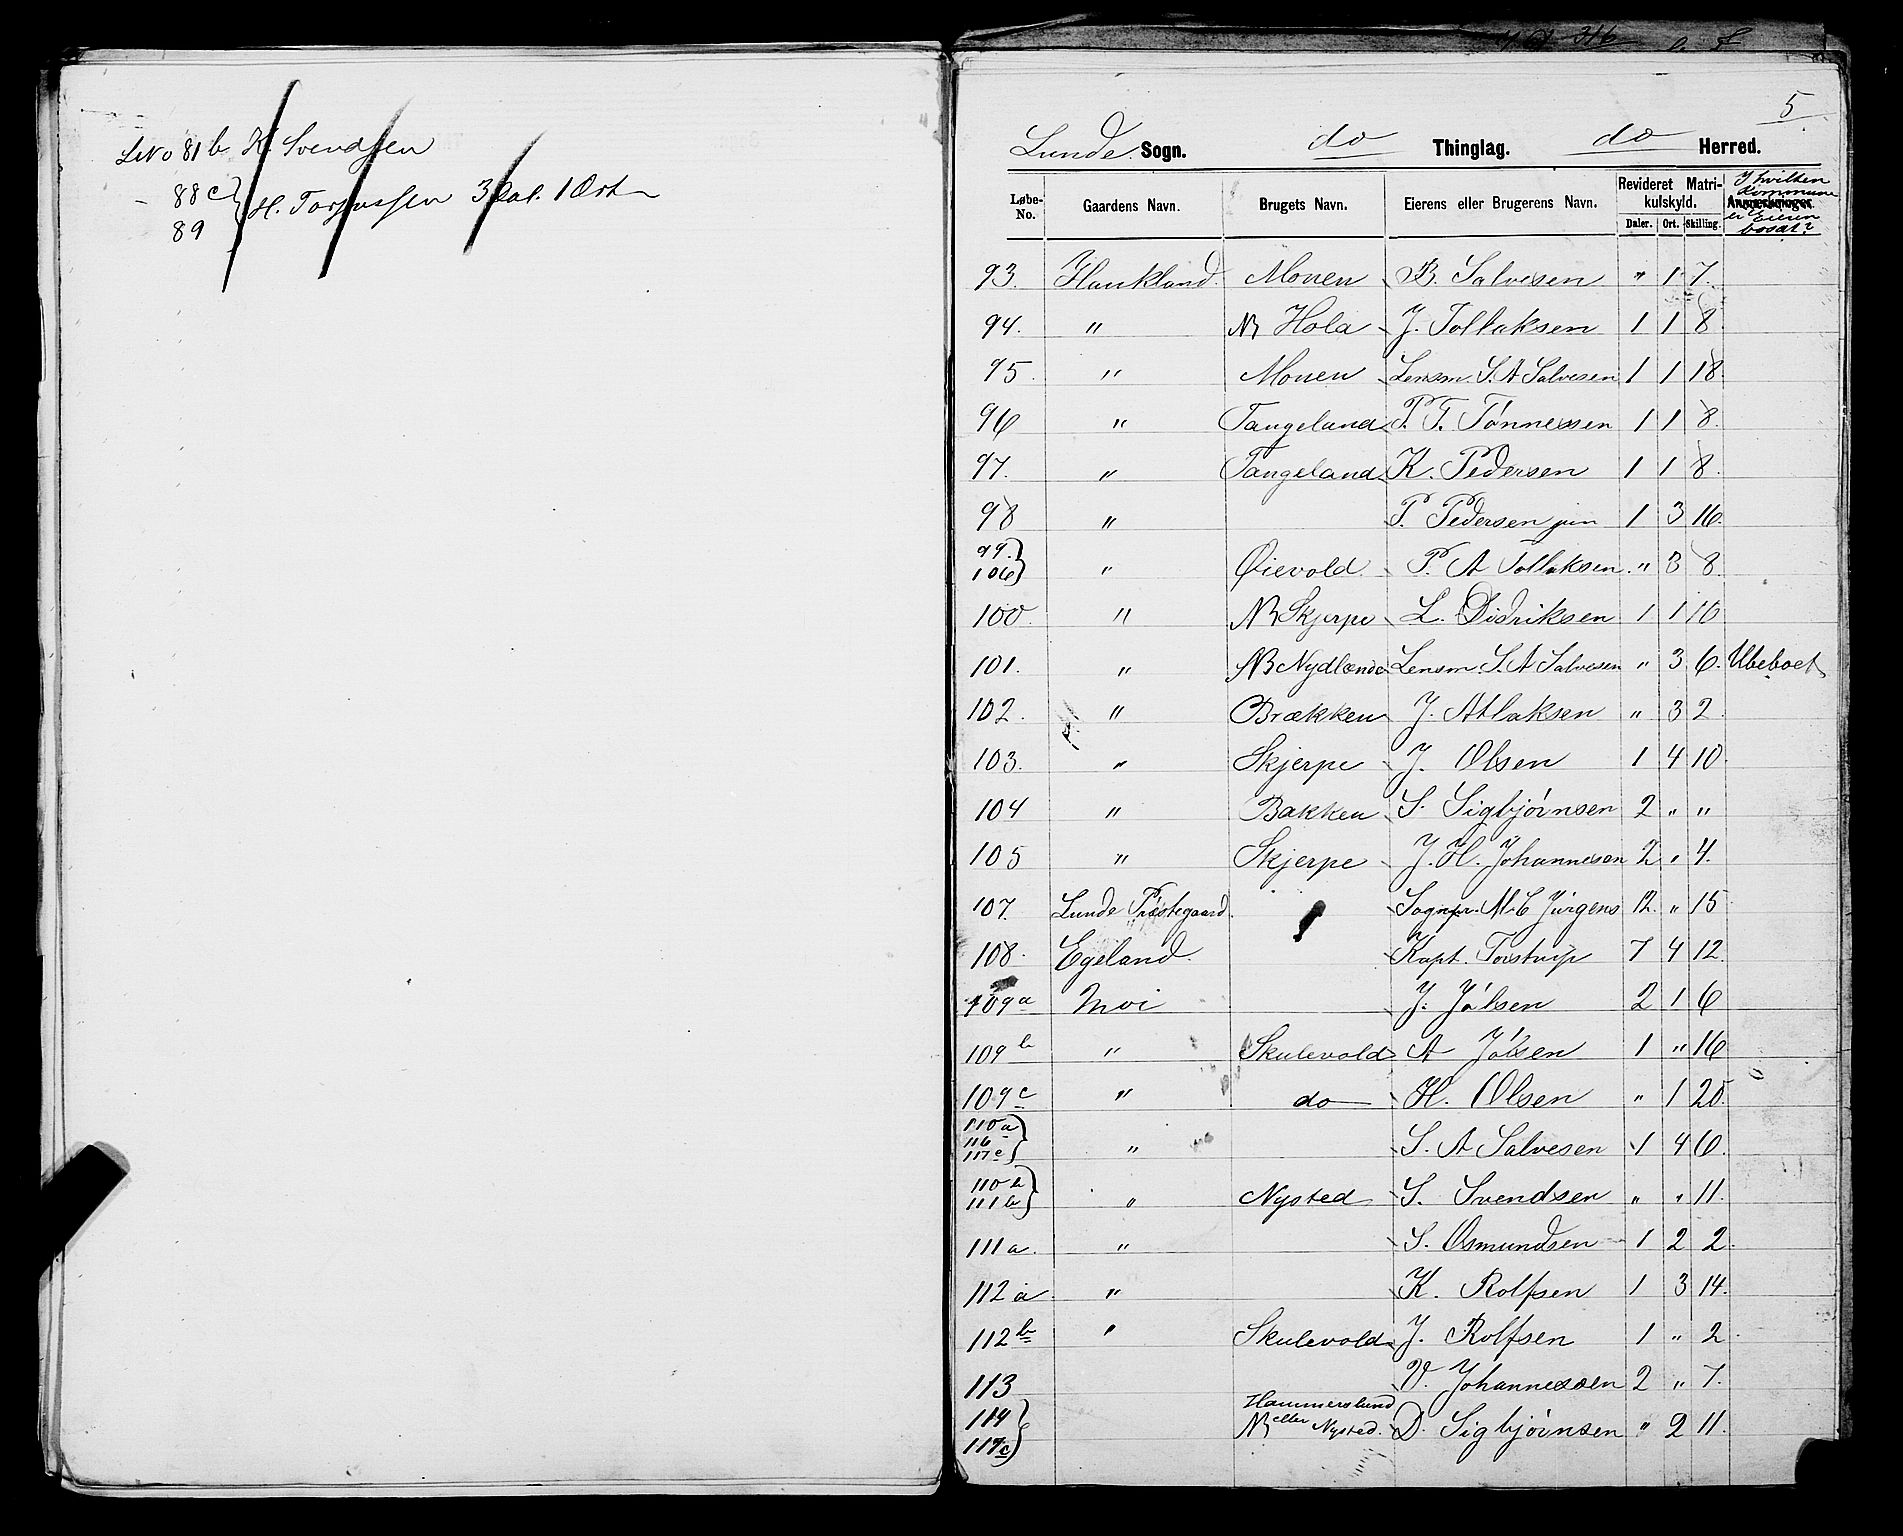 LNo 81 b K. Svendsen
" 88 c } H. Torjussen 3 Dal. 1 Ort
89
5
Lunde Sogn. do Thinglag. do Herred.
Løbe-No. Gaardens Navn. Brugets Navn. Eierens eller Brugerens Navn. Revideret Matrikulskyld. Daler. Ort. Skilling. Anmerkninger. I hvilken Kommune er Eieren bosat?
93. Haukland. Monen B. Salvesen " 1 7.
94. " NB Hola J. Tollaksen 1 1 8
95. " Monen Lensm. S. A Salvesen 1 1 18
96 " Tangeland P. T. Tønnessen 1 1 8.
97. " Tangeland K. Pedersen 1 1 8.
98 " P. Pedersen jun 1 3 16.
99. 106 } " Øievold P. A Tollaksen " 3 8
100. " NB Skjerpe L. Didriksen 1 1 10
101. " NB Nydlænde Lensm. S. A Salvesen " 3 6. Ubeboet
102. " Brækken J. Atlaksen " 3 2
103. " Skjerpe J. Olsen 1 4 10
104 " Bakken S. Sigbjørnsen 2 " "
105 " Skjerpe J. H. Johannesen 2 " 4.
107. Lunde Præstegaard. Sognpr. M. C Jürgens 12. " 15
108. Egeland. Kapt. Torstrup 7 4 12
109a Moi J. Jølsen 2 1 6
109b " Skulevold A Jølsen 1 " 16
109c " do H. Olsen " 1 20.
110a 116 117e } " S. A Salvesen 1 4 6.
110b 111b } " Nysted S. Svendsen " " 11.
111a. " S. Osmundsen 1 2 2
112a " K. Rolfsen 1 3 14.
112b " Skulevold J. Rolfsen 1 " 2
113 V. Johannessen 2 " 7.
114 117c } NB Hammerslund eller Nysted. D. Sigbjørnsen " 2 11.